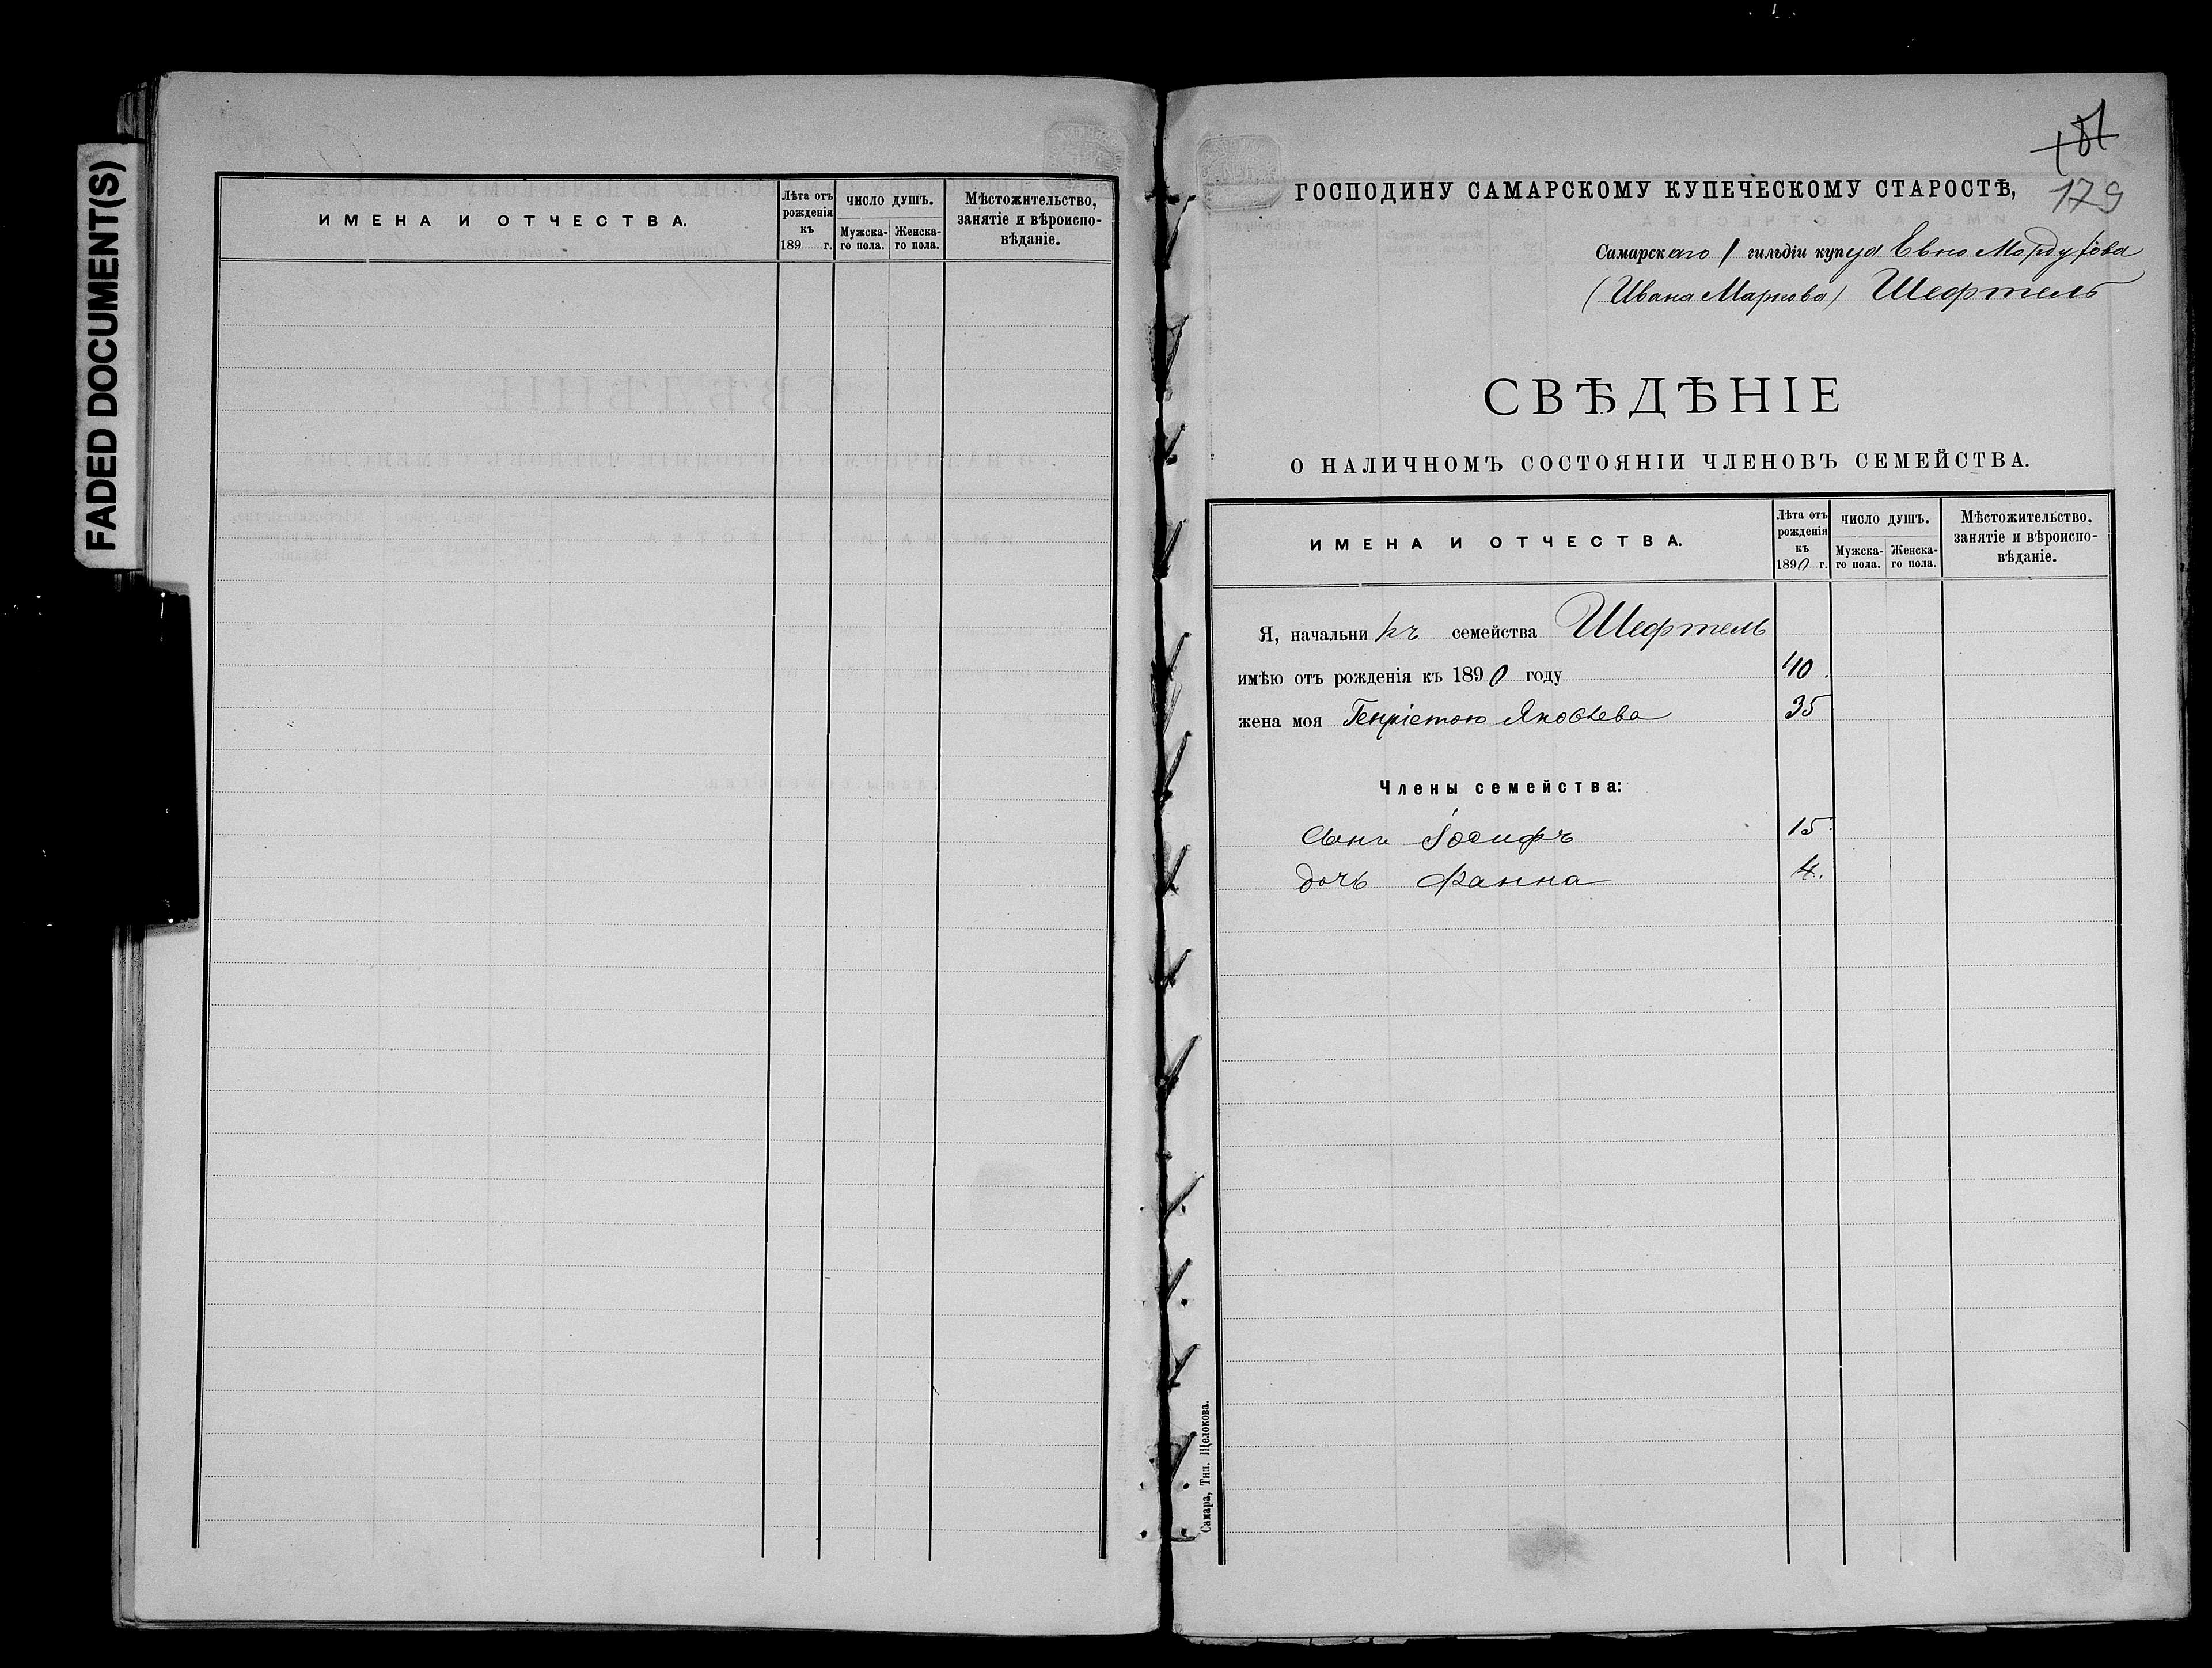 FADED DOCUMENT(S)
ИМЕНА И ОТЧЕСТВА.
Лѣта отъ рожденія къ 189 г.
ЧИСЛО ДУШЪ.
Мужска-го пола.
Женска-го пола.
Мѣстожительство, занятіе и вѣроиспо-вѣданіе.
179
ГОСПОДИНУ САМАРСКОМУ КУПЕЧЕСКОМУ СТАРОСТѢ,
Самарскаго 1 гильдіи купца Евно Мордухова
(Ивана Маркова) Шефтель
СВѢДѢНІЕ
О НАЛИЧНОМЪ СОСТОЯНІИ ЧЛЕНОВЪ СЕМЕЙСТВА.
ИМЕНА И ОТЧЕСТВА.
Лѣта отъ рожденія къ 1890 г.
ЧИСЛО ДУШЪ.
Мужска-го пола.
Женска-го пола.
Мѣстожительство, занятіе и вѣроиспо-вѣданіе.
Я, начальникъ семейства Шефтель
имѣю отъ рожденія къ 1890 году 40.
жена моя Генріетою Яковлева 35
Члены семейства:
Сынъ Іосифъ 15
дочь Фанна 4.
Самара, Тип. Щелокова.